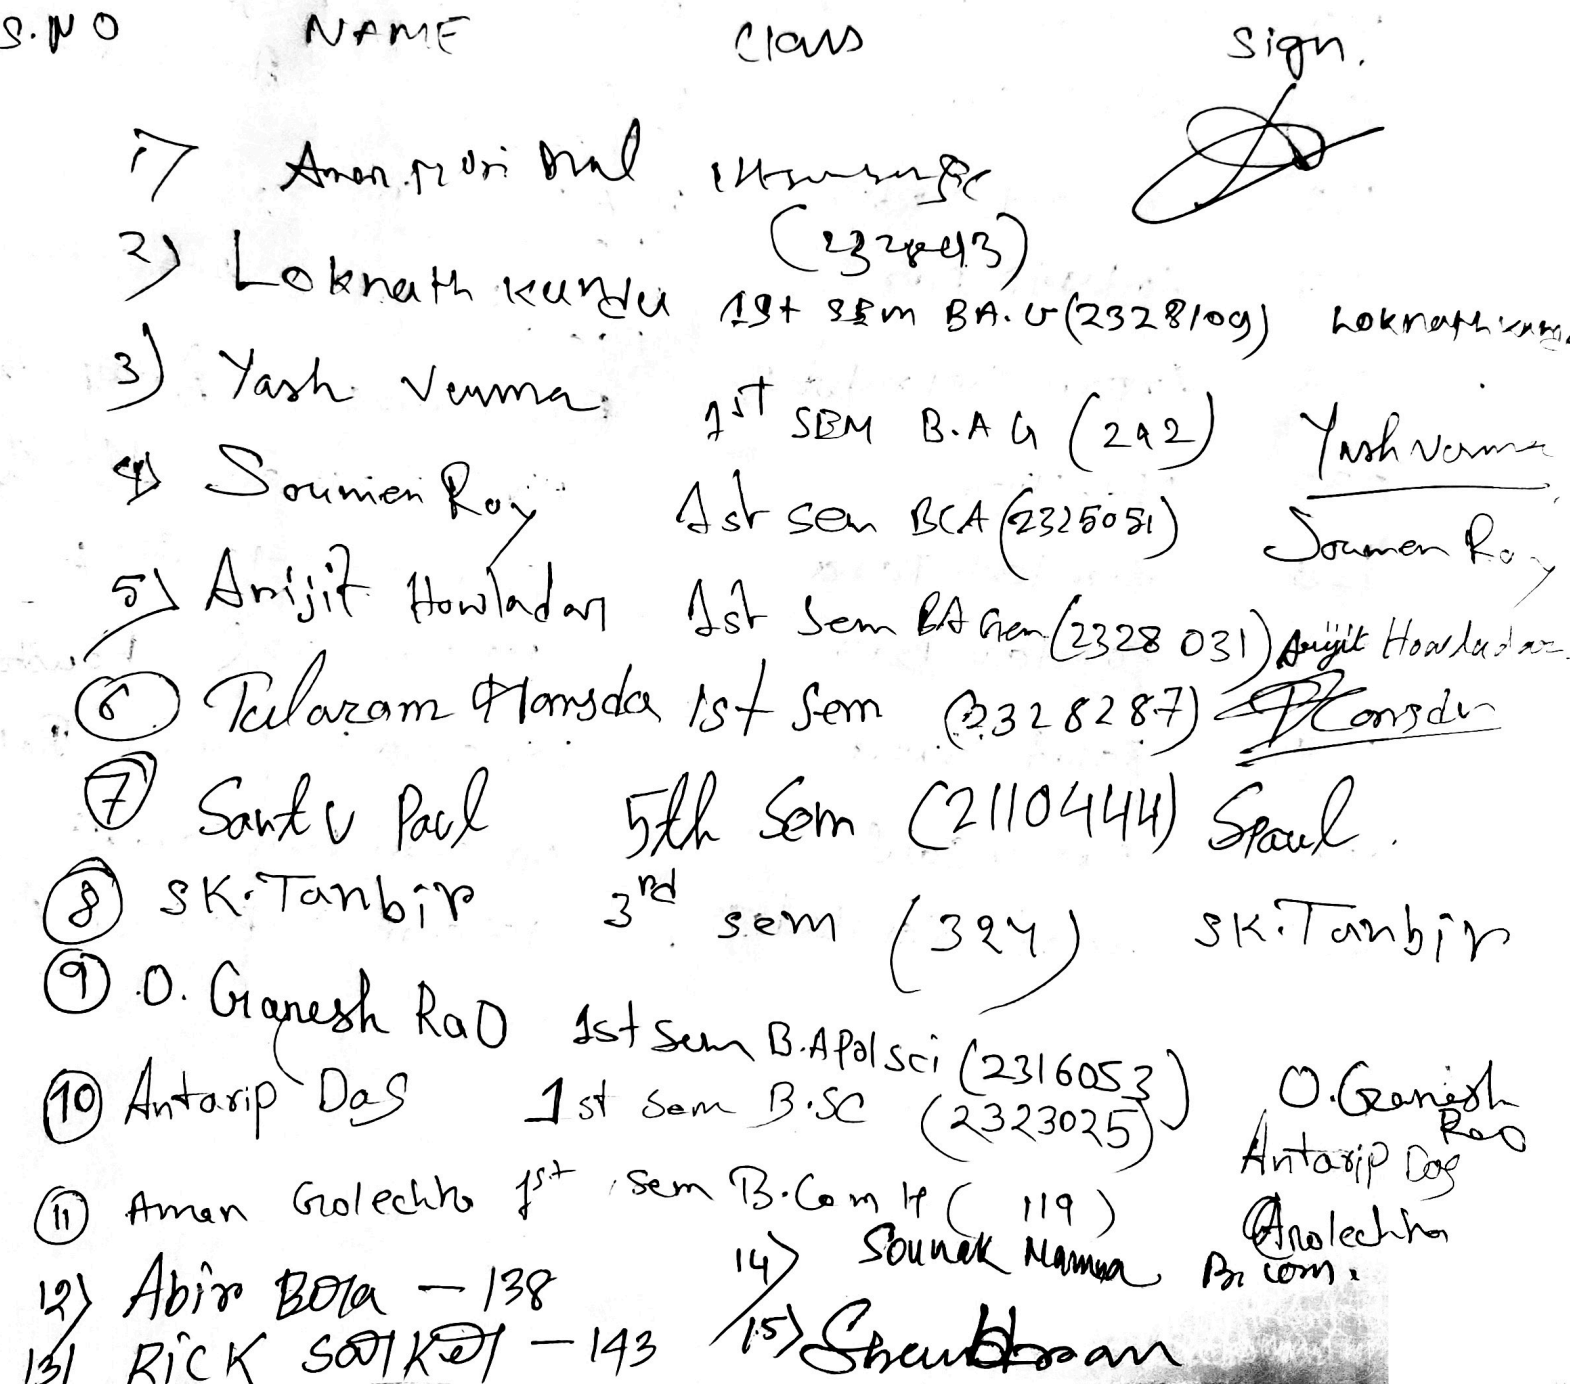 S.NO NAME Class Sign.
1)
2) Loknath Kundu 1st sem BA.G (2328109) Loknath
3) Yash Verma 1st SEM B.A G (292) Yash Verma
4) Soumen Roy 1st sem BCA (2325051) Soumen Roy
5) Arijit Howladar 1st Sem BA Gen (2328031) Arijit Howladar
6 Tularam Hansda 1st Sem (2328287) Hansda
7 Santu Paul 5th Sem (2110444) SPaul.
8 SK. Tanbir 3rd sem (324) SK. Tanbir
9 O. Ganesh Rao 1st Sem B.A Pol sci (2316053) O. Ganesh Rao
10 Antarip Das 1st Sem B.SC (2323025) Antarip Das
11 Aman Golechha 1st Sem B.Com H (119) Golechha
12) Abir Bora - 138
13) RICK - 143
14) Sounak B. com.
15)